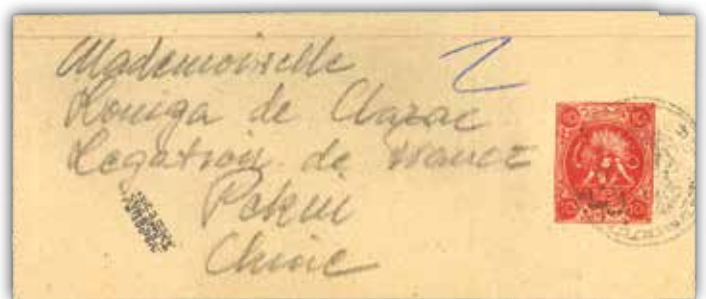 Mademoiselle
Louiga de Clazac
Legation de France
Pekin
Chine